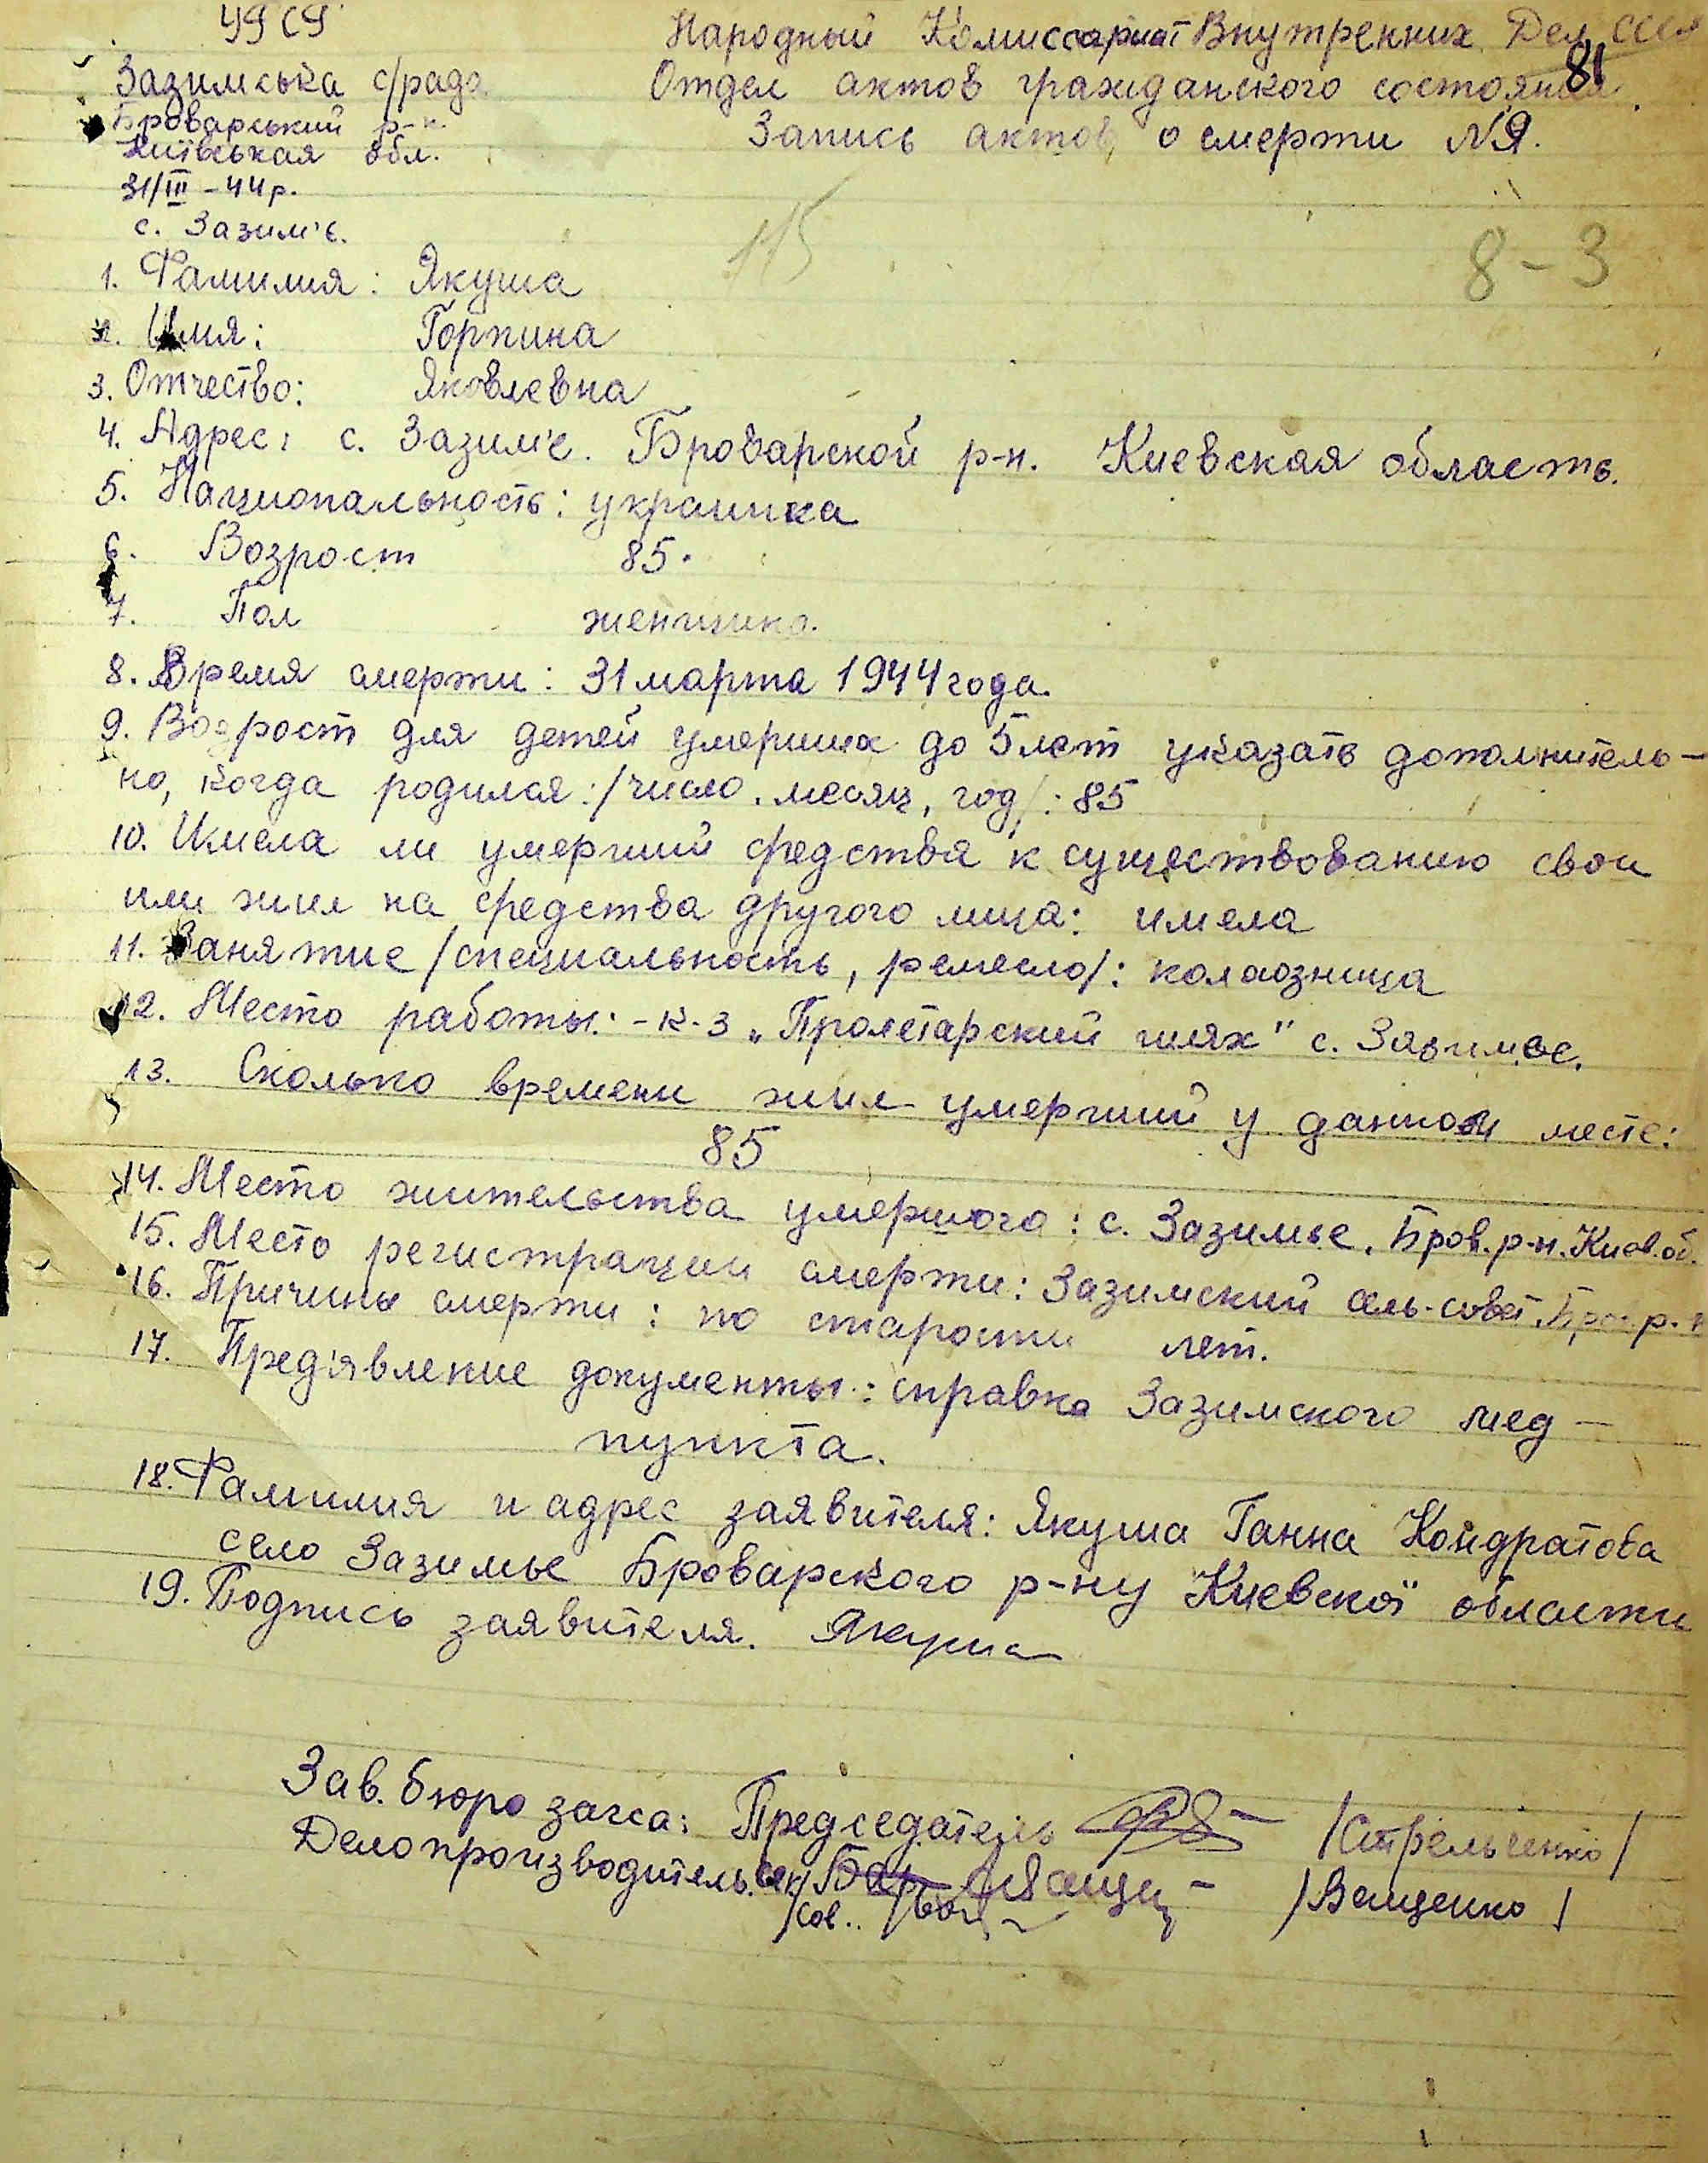 УРСР
Народный Комиссариат Внутренних Дел СССР
81
Зазимська с/рада
Отдел актов гражданского состояния
Броварський р-н.
Запись актов о смерти №9.
Київськая обл.
31/III - 44 р.
с. Зазим'є.
115
8-3
1. Фамилия: Якуша
2. Имя: Горпина
3. Отчество: Яковлевна
4. Адрес: с. Зазим'е. Броварской р-н. Киевская область.
5. Национальность: украинка
6. Возрост 85.
7. Пол женщина.
8. Время смерти: 31 марта 1944 года.
9. Возрост для детей умерших до 5 лет указать дополнитель-
но, когда родился: /число, месяц, год/: 85
10. Имела ли умерший средства к существованию свои
или жил на средства другого лица: имела
11. Занятие /специальность, ремесло/: колхозница
12. Место работы: - к-з „Пролетарский шлях" с. Зазимье.
13. Сколько времени жил умерший у данном месте:
85
14. Место жительства умершого: с. Зазимье, Бров. р-н. Киев. об.
15. Место регистрации смерти: Зазимский сель-совет, Бров. р-н
16. Причины смерти: по старости лет.
17. Пред'явление документы: справка Зазимского мед-
пункта.
18. Фамилия и адрес заявителя: Якуша Ганна Кондратова
село Зазимье Броварского р-ну Киевской области
19. Подпись заявителя. Якуша
Зав. бюро загса: Председатель /Стрельченко/
Делопроизводитель. сек /Ващенко/